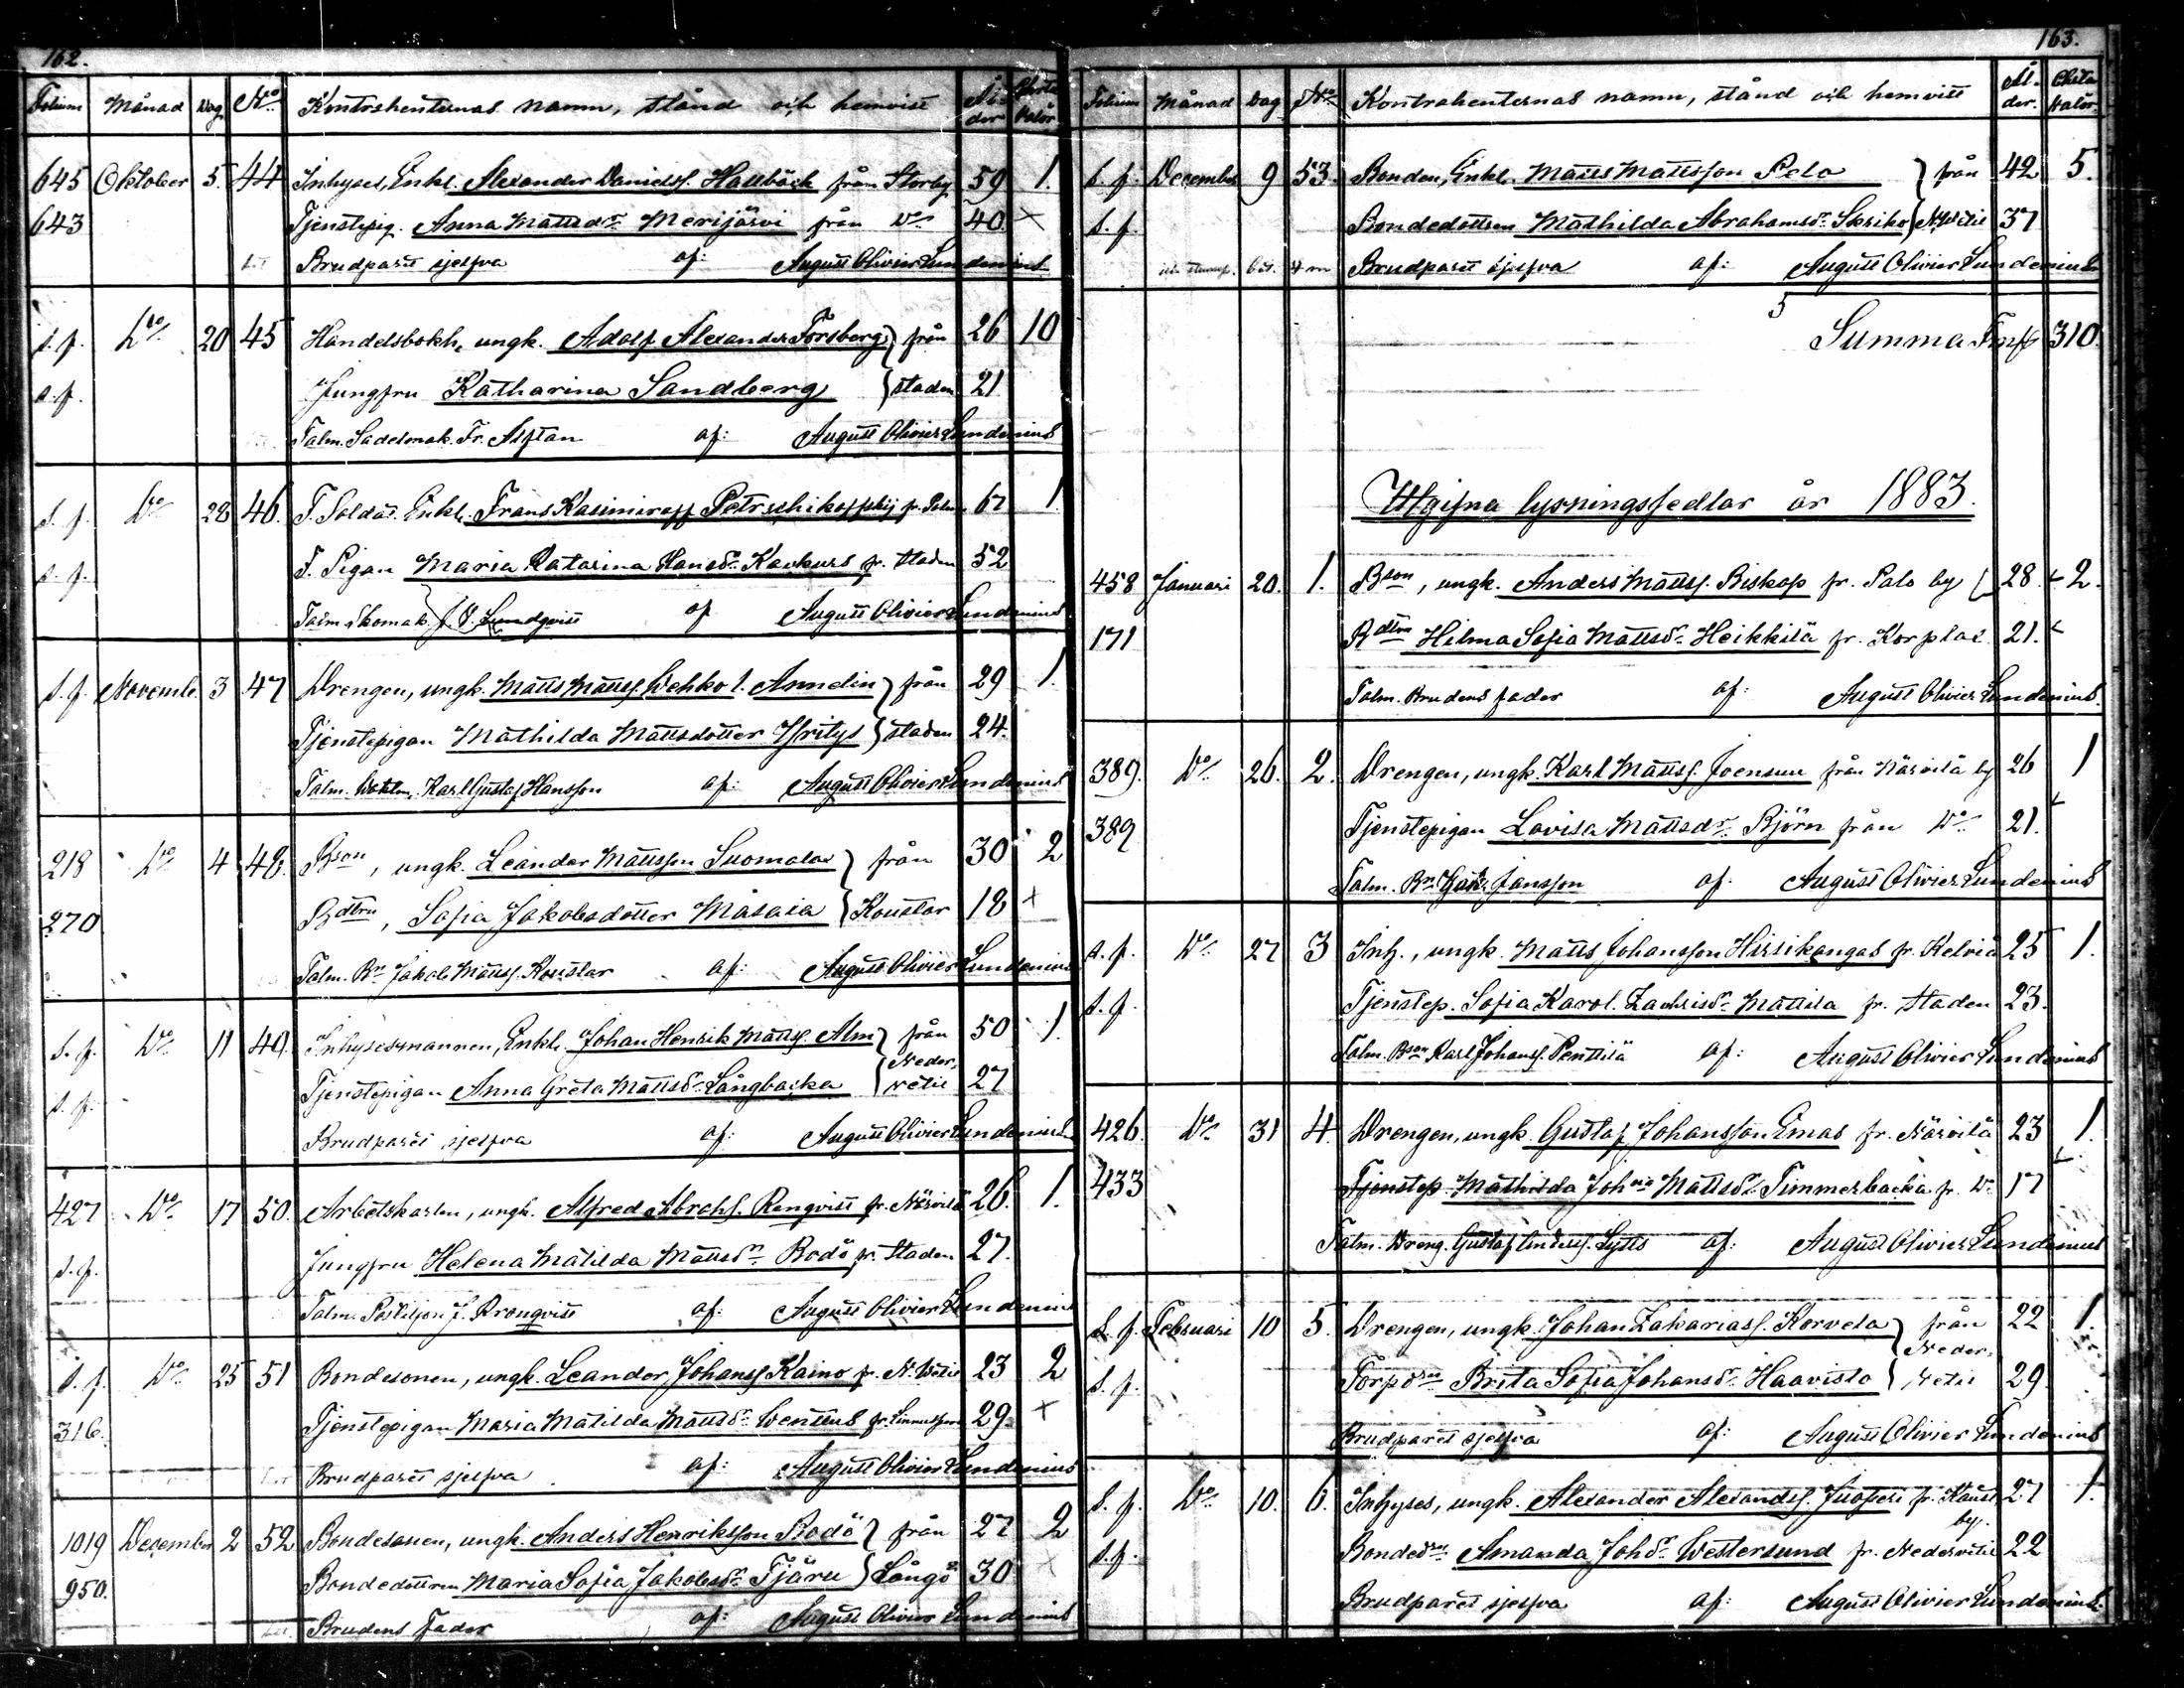 162.
Folium Månad Dag No Kontrahenternas namn, stånd och hemvist Ålder Charta Valör
645 Oktober 5. 44 Inhyses, Enkl. Alexander Danielss. Hallbäck från Storby 59 1.
643 Tjenstepig. Anna Mattsdr. Merijärvi från Do 40 x
Brudparet sjelfva af: August Olivier Lundenius
s. f. Do 20 45 Handelsbokh, ungk. Adolf Alexander Forsberg } från 26 10
s. f. Jungfru Katharina Sandberg } staden 21
Talm. Sadelmak. Fr. Alftan af: August Olivier Lundenius
s. f. Do 28 46. F. Soldat. Enkl. Frans Kasimiroff Petrschikoffskij fr. 67 1.
s. f. F. Pigan Maria Katarina Hansdr. Kavkurs fr. staden 52
Talm. Skomak. J. V. Lundqvist af August Olivier Lundenius
s. f. Novemb. 3 47 Drengen, ungk. Matts Mattss. Wehko l. Annelin } från 29 1.
Tjenstepigan Mathilda Mattsdotter Yritys } staden 24.
Talm. Karl Gustaf Hansson af: August Olivier Lundenius
218 Do 4 48. Bson, ungk. Leander Mattsson Suomalas } från 30 2
270 Bdtrn, Sofia Jakobsdotter Måsala } Koustar 18 x
Talm. Bn Jakob Mattss. Koustar af: August Olivier Lundenius
s. f. Do 11 49. Inhysesmannen, Enkl. Johan Henrik Mattss. Alm } från 50 1.
s. f. Tjenstepigan Anna Greta Mattsdr. Långbacka } Neder-vetil 27
Brudparet sjelfva af: August Olivier Lundenius
427 Do 17 50. Arbetskarlen, ungk. Alfred Abrahs. Renqvist fr. Närvilä 26. 1.
s. f. Jungfru Helena Matilda Mattsdr. Bodö fr. staden 27.
Talm. Postiljon J. Kronqvist af: August Olivier Lundenius
s. f. Do 25 51 Bondesonen, ungk. Leander Johanss. Kaino fr. N. Wetil 23 2
316. Tjenstepigan Maria Matilda Mattsdr. Wenttus fr. 29. x
Brudparet sjelfva af: August Olivier Lundenius
1019 December 2 52 Bondesonen, ungk. Anders Henriksson Bodö } från 27 2
950. Bondedottren Maria Sofia Jakobsdr. Fjäru } Långö 30 x
Brudens fader af: August Olivier Lundenius
163.
Folium Månad Dag No Kontrahenternas namn, stånd och hemvist Ålder. Charta Valör.
s. f. December 9 53. Bonden, Enkl. Matts Mattsson Pelo } från 42 5.
s. f. Bondedottren Mathilda Abrahamsdr. Skriko } N. Vetil 37
Brudparet sjelfva af: August Olivier Lundenius
5
Summa Fmk 310.
Utgifna lysningssedlar år 1883.
458 Januari 20. 1. Bson, ungk. Anders Mattss. Biskop fr. Palo by 28. 2.
171 Bdtrn Hilma Sofia Mattsdr. Heikkilä fr. Korplax 21.
Talm. Brudens fader af: August Olivier Lundenius.
389. Do 26. 2. Drengen, ungk. Karl Mattss. Joensuu från Närvilä by 26 1
389 Tjenstepigan Lovisa Mattsdr. Björn från Do 21.
Talm. Bn Jansson af: August Olivier Lundenius
s. f. Do 27 3 Inh., ungk. Matts Johansson Hirsikangas fr. Kelviå 25 1.
s. f. Tjenstep. Sofia Karol. Zachrisdr. Mattila fr. staden 23.
Talm. Bson Karl Johanss. Penttilä af: August Olivier Lundenius
426. Do 31 4. Drengen, ungk. Gustaf Johansson Emas fr. Närvilä 23 1.
433 Tjenstep. Mathilda Johna Mattsdr. Timmerbacka fr. Do 17
Talm. Dreng. Gustaf Anderss. Sytts af: August Olivier Lundenius
s. f. Februari 10 5. Drengen, ungk. Johan Zakariass. Korvela } från 22 1.
s. f. Torpdrn Brita Sofia Johansdr. Haavisto } Neder-vetil 29
Brudparet sjelfva af: August Olivier Lundenius
s. f. Do 10. 6. Inhyses, ungk. Alexander Alexandss. Juoperi fr. Kaust by. 27 1.
s. f. Bondedrn Amanda Johdr. Westersund fr. Nedervetil 22
Brudparet sjelfva af: August Olivier Lundenius.